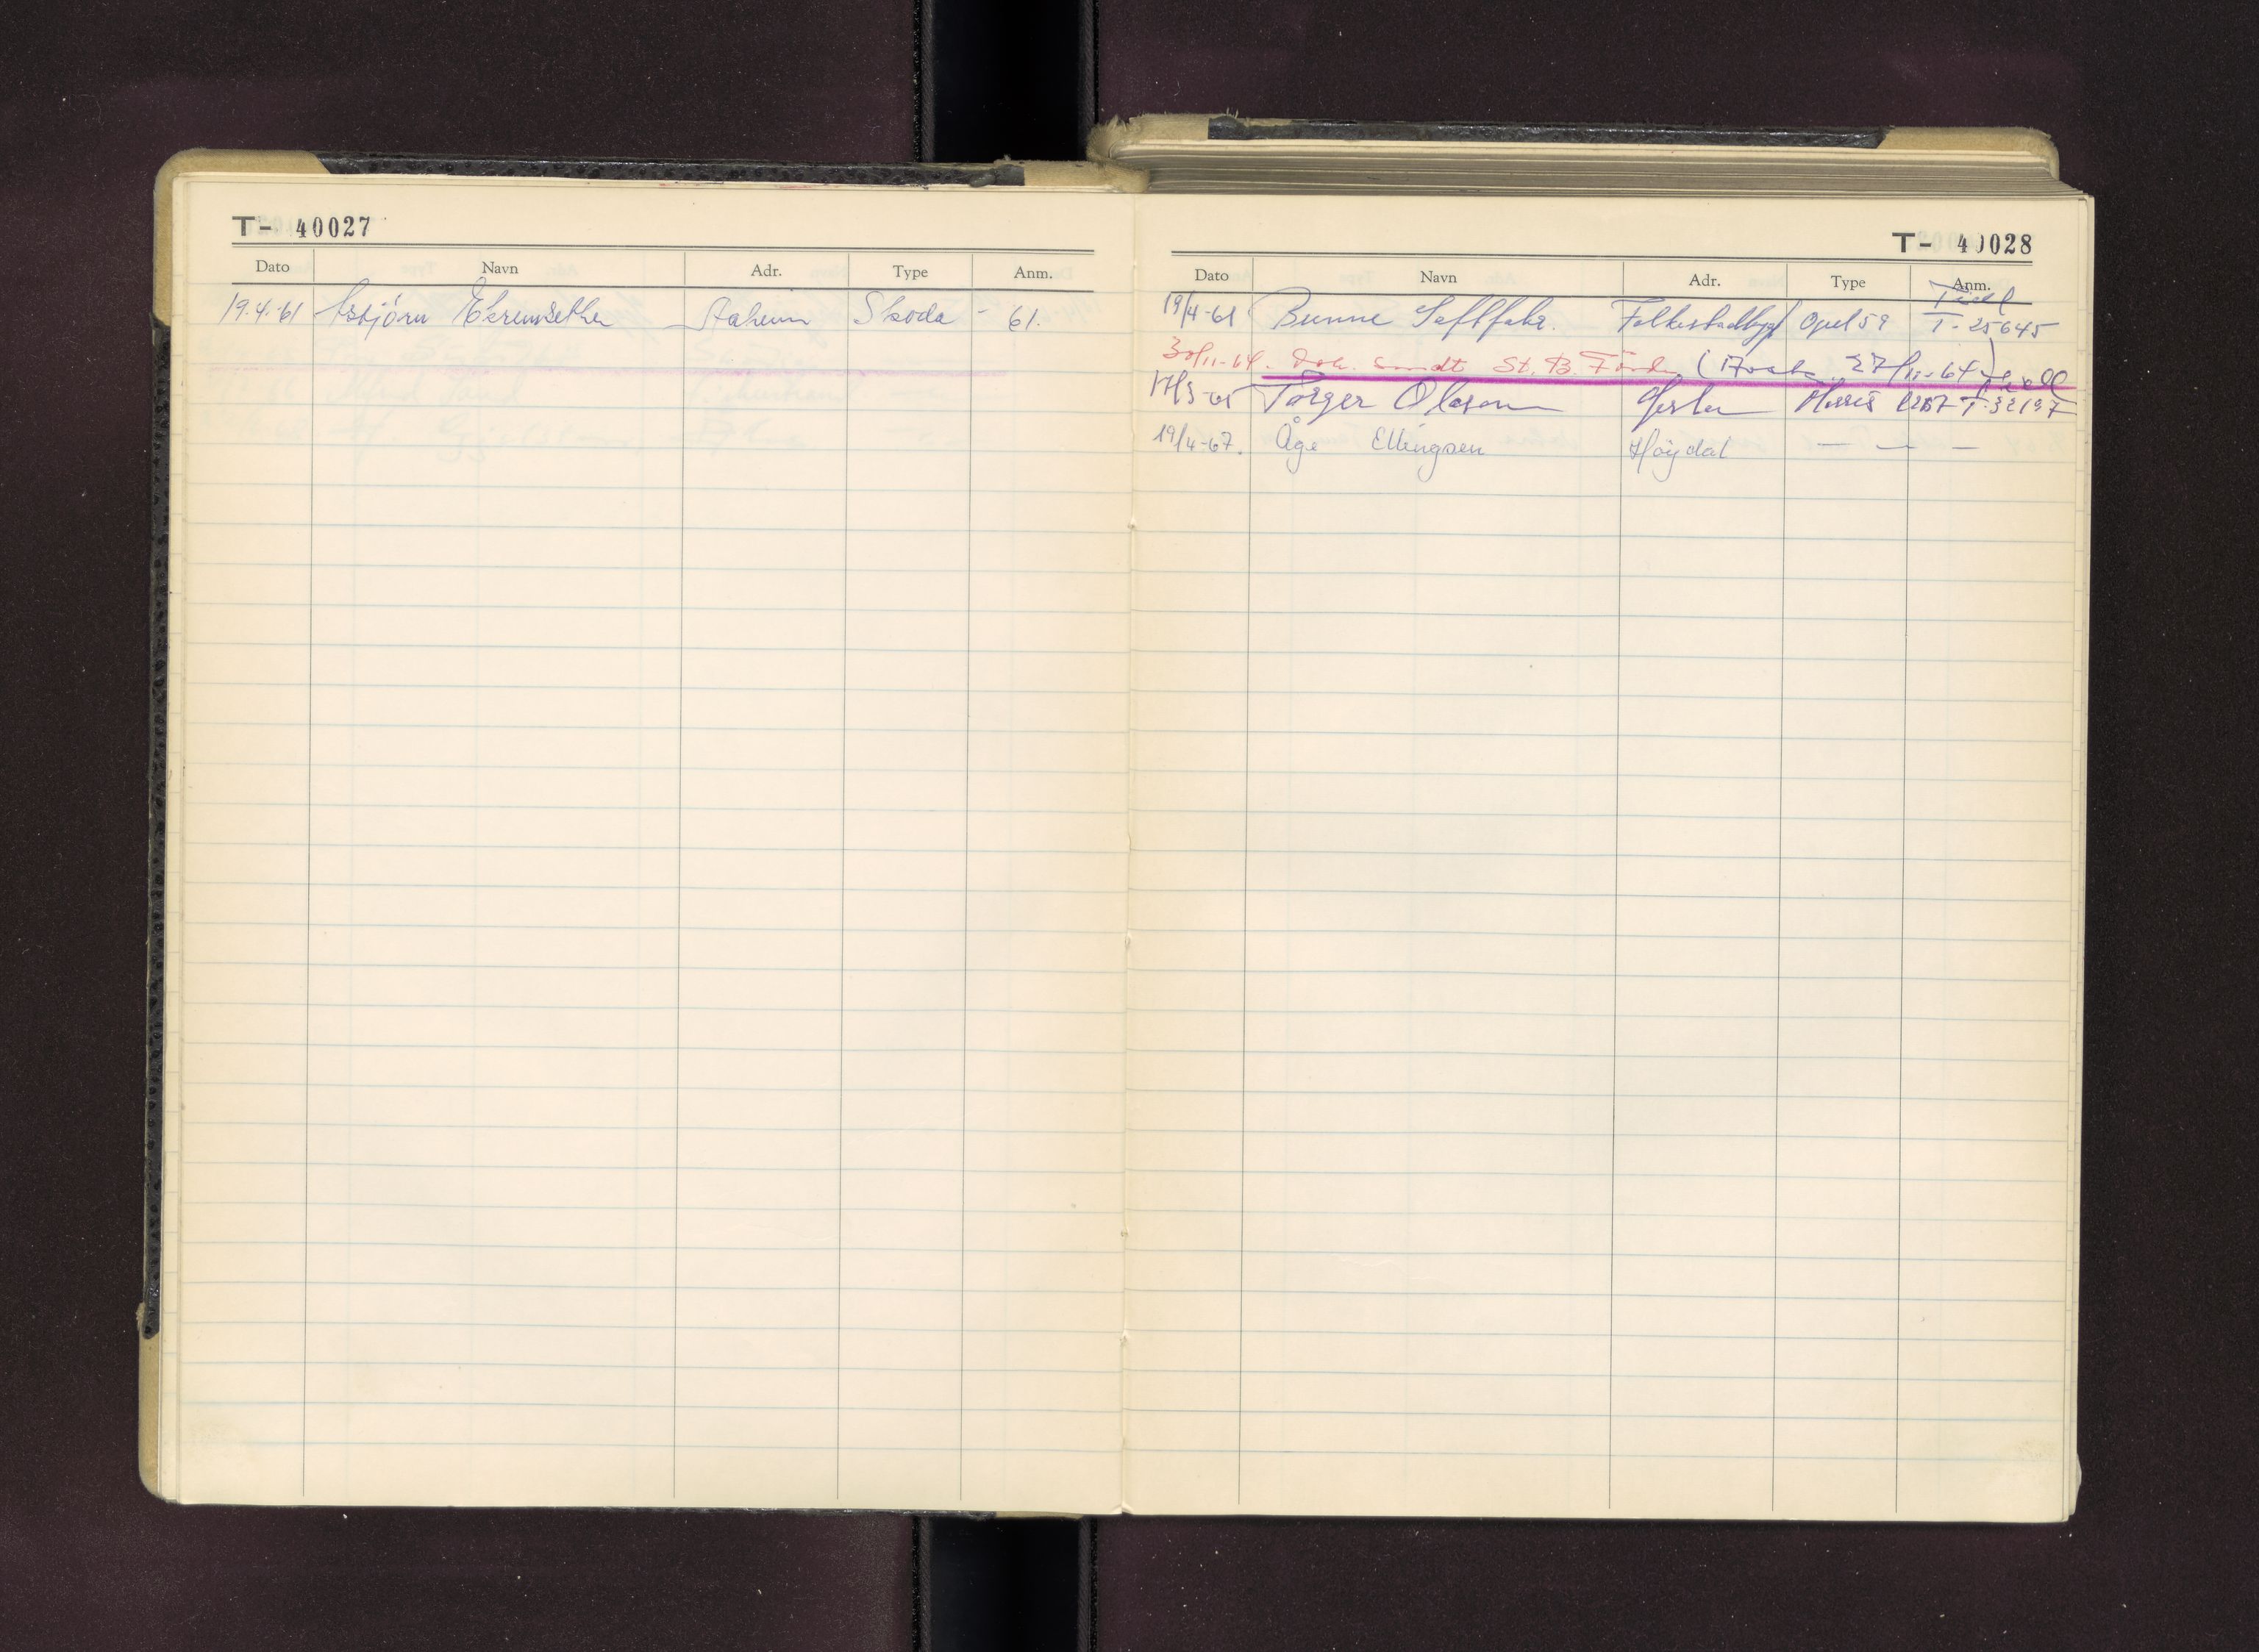 T- 40027
Dato Navn Adr. Type Anm.
19.4.-61 Asbjörn Ekremsæther Aaheim Skoda - 61.
T- 40028
Dato Navn Adr. Type Anm.
19/4-61 Bunne Folkestadbygd Opel 59 T- 25645
30/11-64. Dok. sendt St. B. Förde ( 27/11-64)
17/3-65 Torger Olesen Morris T-32197
19/4-67. Åge Ellingsen Höydal — — —